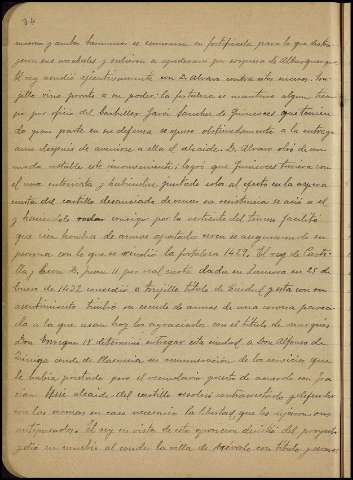 34
mismo y ambos hermanos se esmeraron en fortificarla para lo que destru-
yeron sus arrabales, y salieron a apoderarse por sorpresa de Alburquerque.
El rey acudió ejecutivamente con D. Alvaro contra estos excesos. Tru-
jillo vino pronto a su poder. La fortaleza se mantuvo algun tiem-
po por oficio del bachiller García Sanchez de Quincoces que tenien-
do gran parte en su defensa se opuso obstinadamente a la entrega
aun despues de avenirse a ella el alcaide. D. Alvaro obró de un
modo notable este inconveniente; logró que Quincoces tuviera con
el una entrevista y habiendose juntado solo al efecto en la
del castillo desconfiado de vencer su resistencia se asió a el
y haciendole rodar consigo por la vertiente del terreno facilitó
que cien hombres de armas apostados cerca se asegurasen de su
persona con lo que se rindió la fortaleza 1429. El rey de Casti-
lla y Leon D. Juan II por real carta dada en Zamora en 25 de
Enero de 1432 concedió a Trujillo título de Ciudad, y esta con su
asentimiento timbró su escudo de armas de una corona pareci-
da a la que usan hoy los agraciados con el título de marqués
Don Enrique IV determinó entregar esta ciudad a Don Alfonso de
Zúñiga conde de Plasencia en remuneracion de los servicios que
le habia prestado pero el vecindario puesto de acuerdo con Gra-
cian Sesé alcaide del castillo resolvió contrarrestarlo y defender
con las armas en caso necesario la libertad que les
antepasados. El rey en vista de esta oposicion desistió del proyecto
y dió en cambio al conde la villa de Arévalo con título